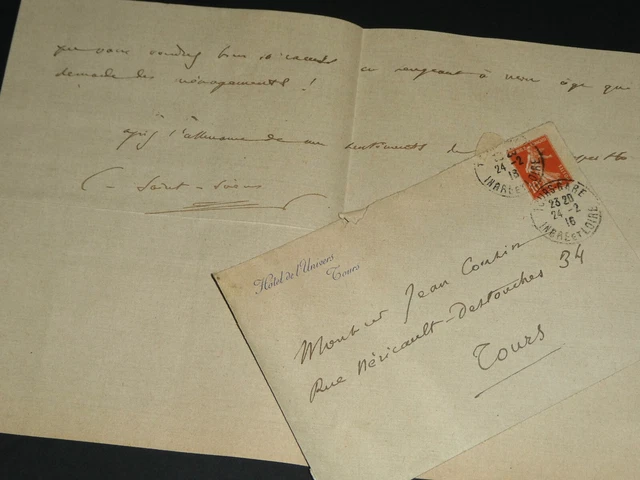 que vous voudrez bien m'excuser en songeant à mon âge qui
demande des ménagements !
l'assurance de mes sentiments
C. Saint-Saëns
Hôtel de l'Univers
Tours
TOURS-GARE
23 20
24-2
16
INDRE ET LOIRE
24-2
16
INDRE ET LOIRE
Monsieur Jean Cousin
Rue Néricault-Destouches 34
Tours